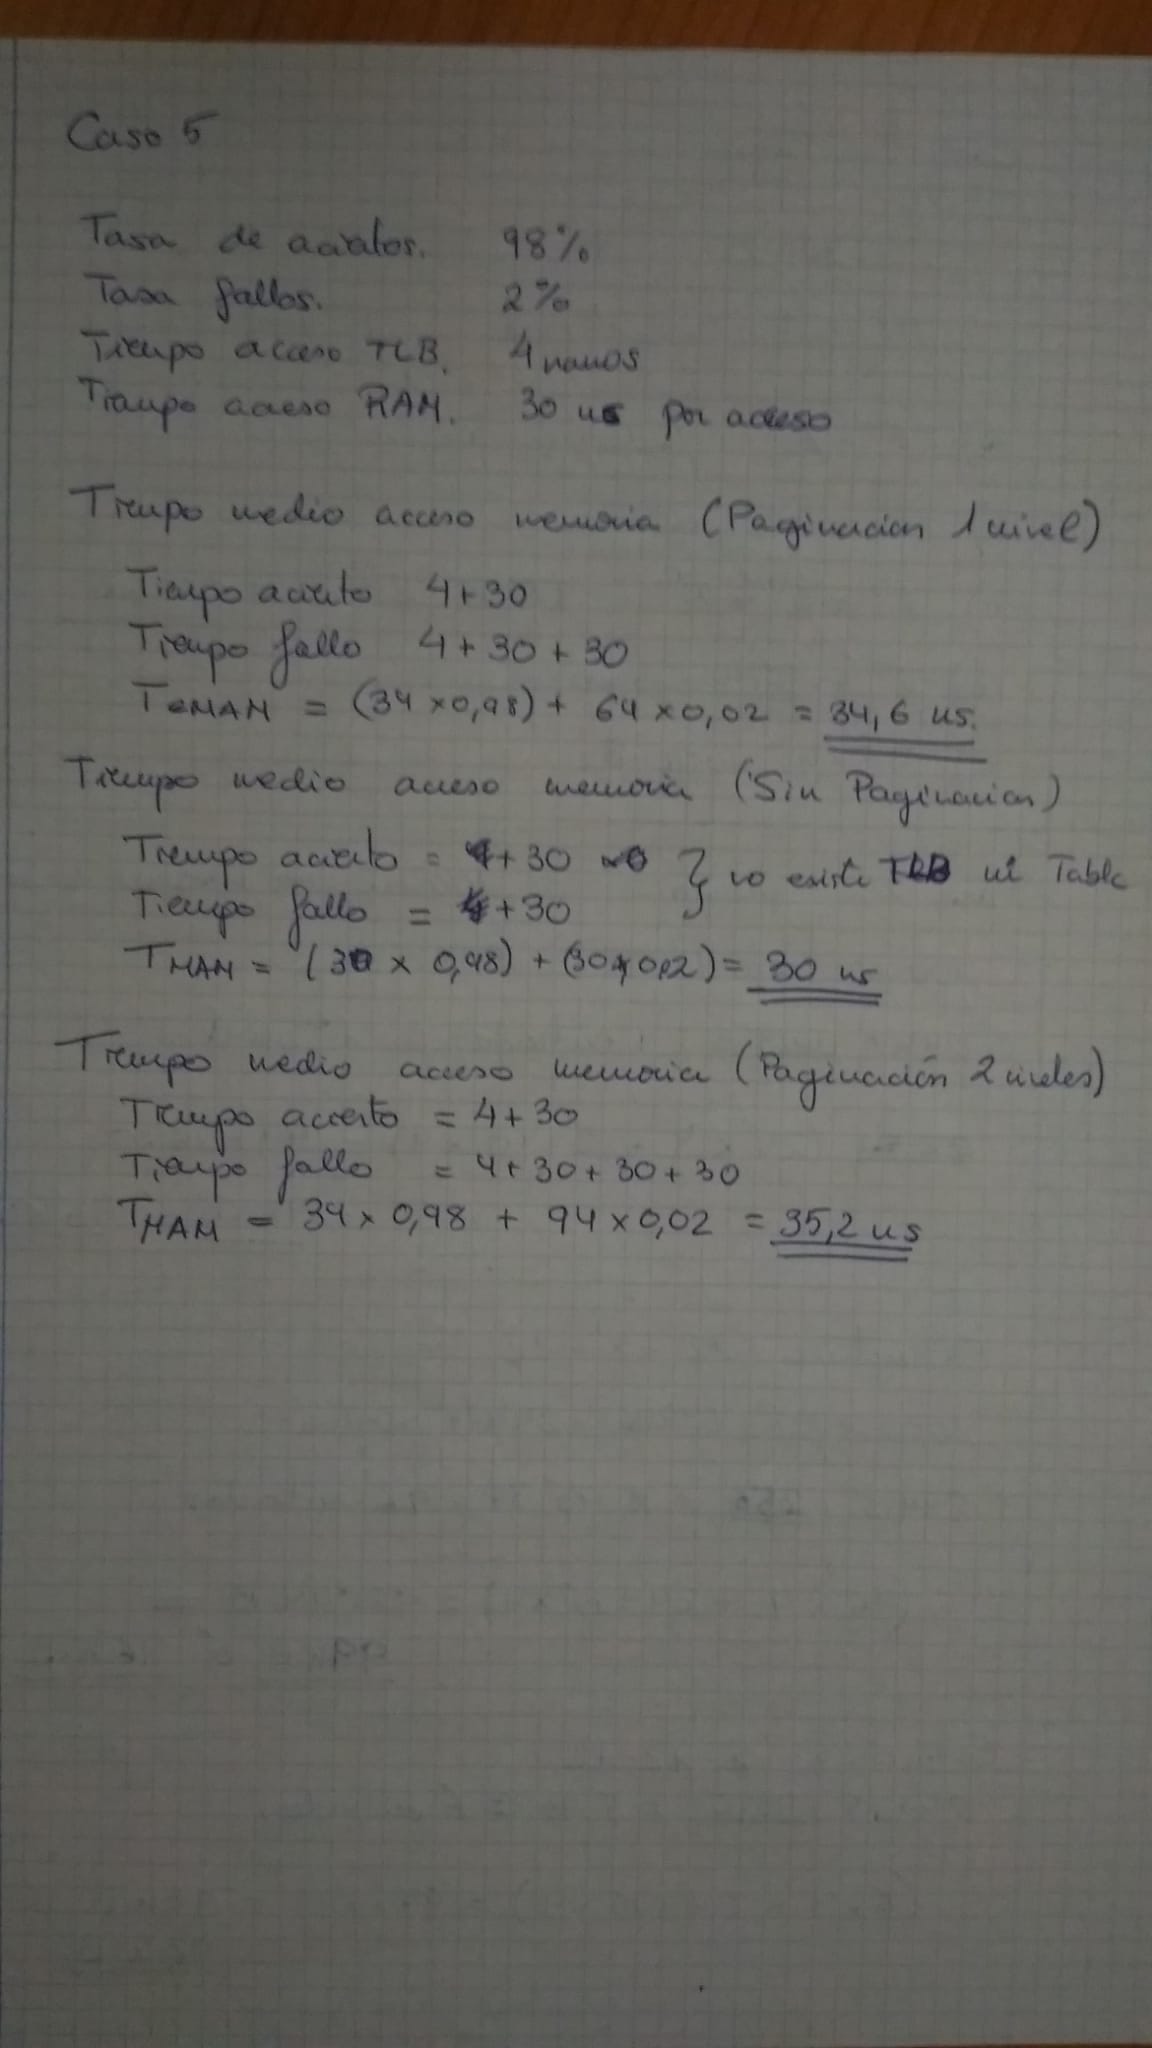 Caso 5
Tasa de aciertos. 98%
Tasa fallos. 2%
Tiempo acceso TLB. 4 nanos
Tiempo acceso RAM. 30 ns por acceso
Tiempo medio acceso memoria (Paginación 1 nivel)
Tiempo acierto 4+30
Tiempo fallo 4+30+30
TMAM = (34 x 0,98) + 64 x 0,02 = 34,6 ns.
Tiempo medio acceso memoria (Sin Paginación)
Tiempo acierto = 4+30 no existe TLB ni Tabla
Tiempo fallo = 4+30
TMAM = (30 x 0,98) + (30 x 0,02) = 30 ns
Tiempo medio acceso memoria (Paginación 2 niveles)
Tiempo acierto = 4+30
Tiempo fallo = 4+30+30+30
TMAM = 34 x 0,98 + 94 x 0,02 = 35,2 ns